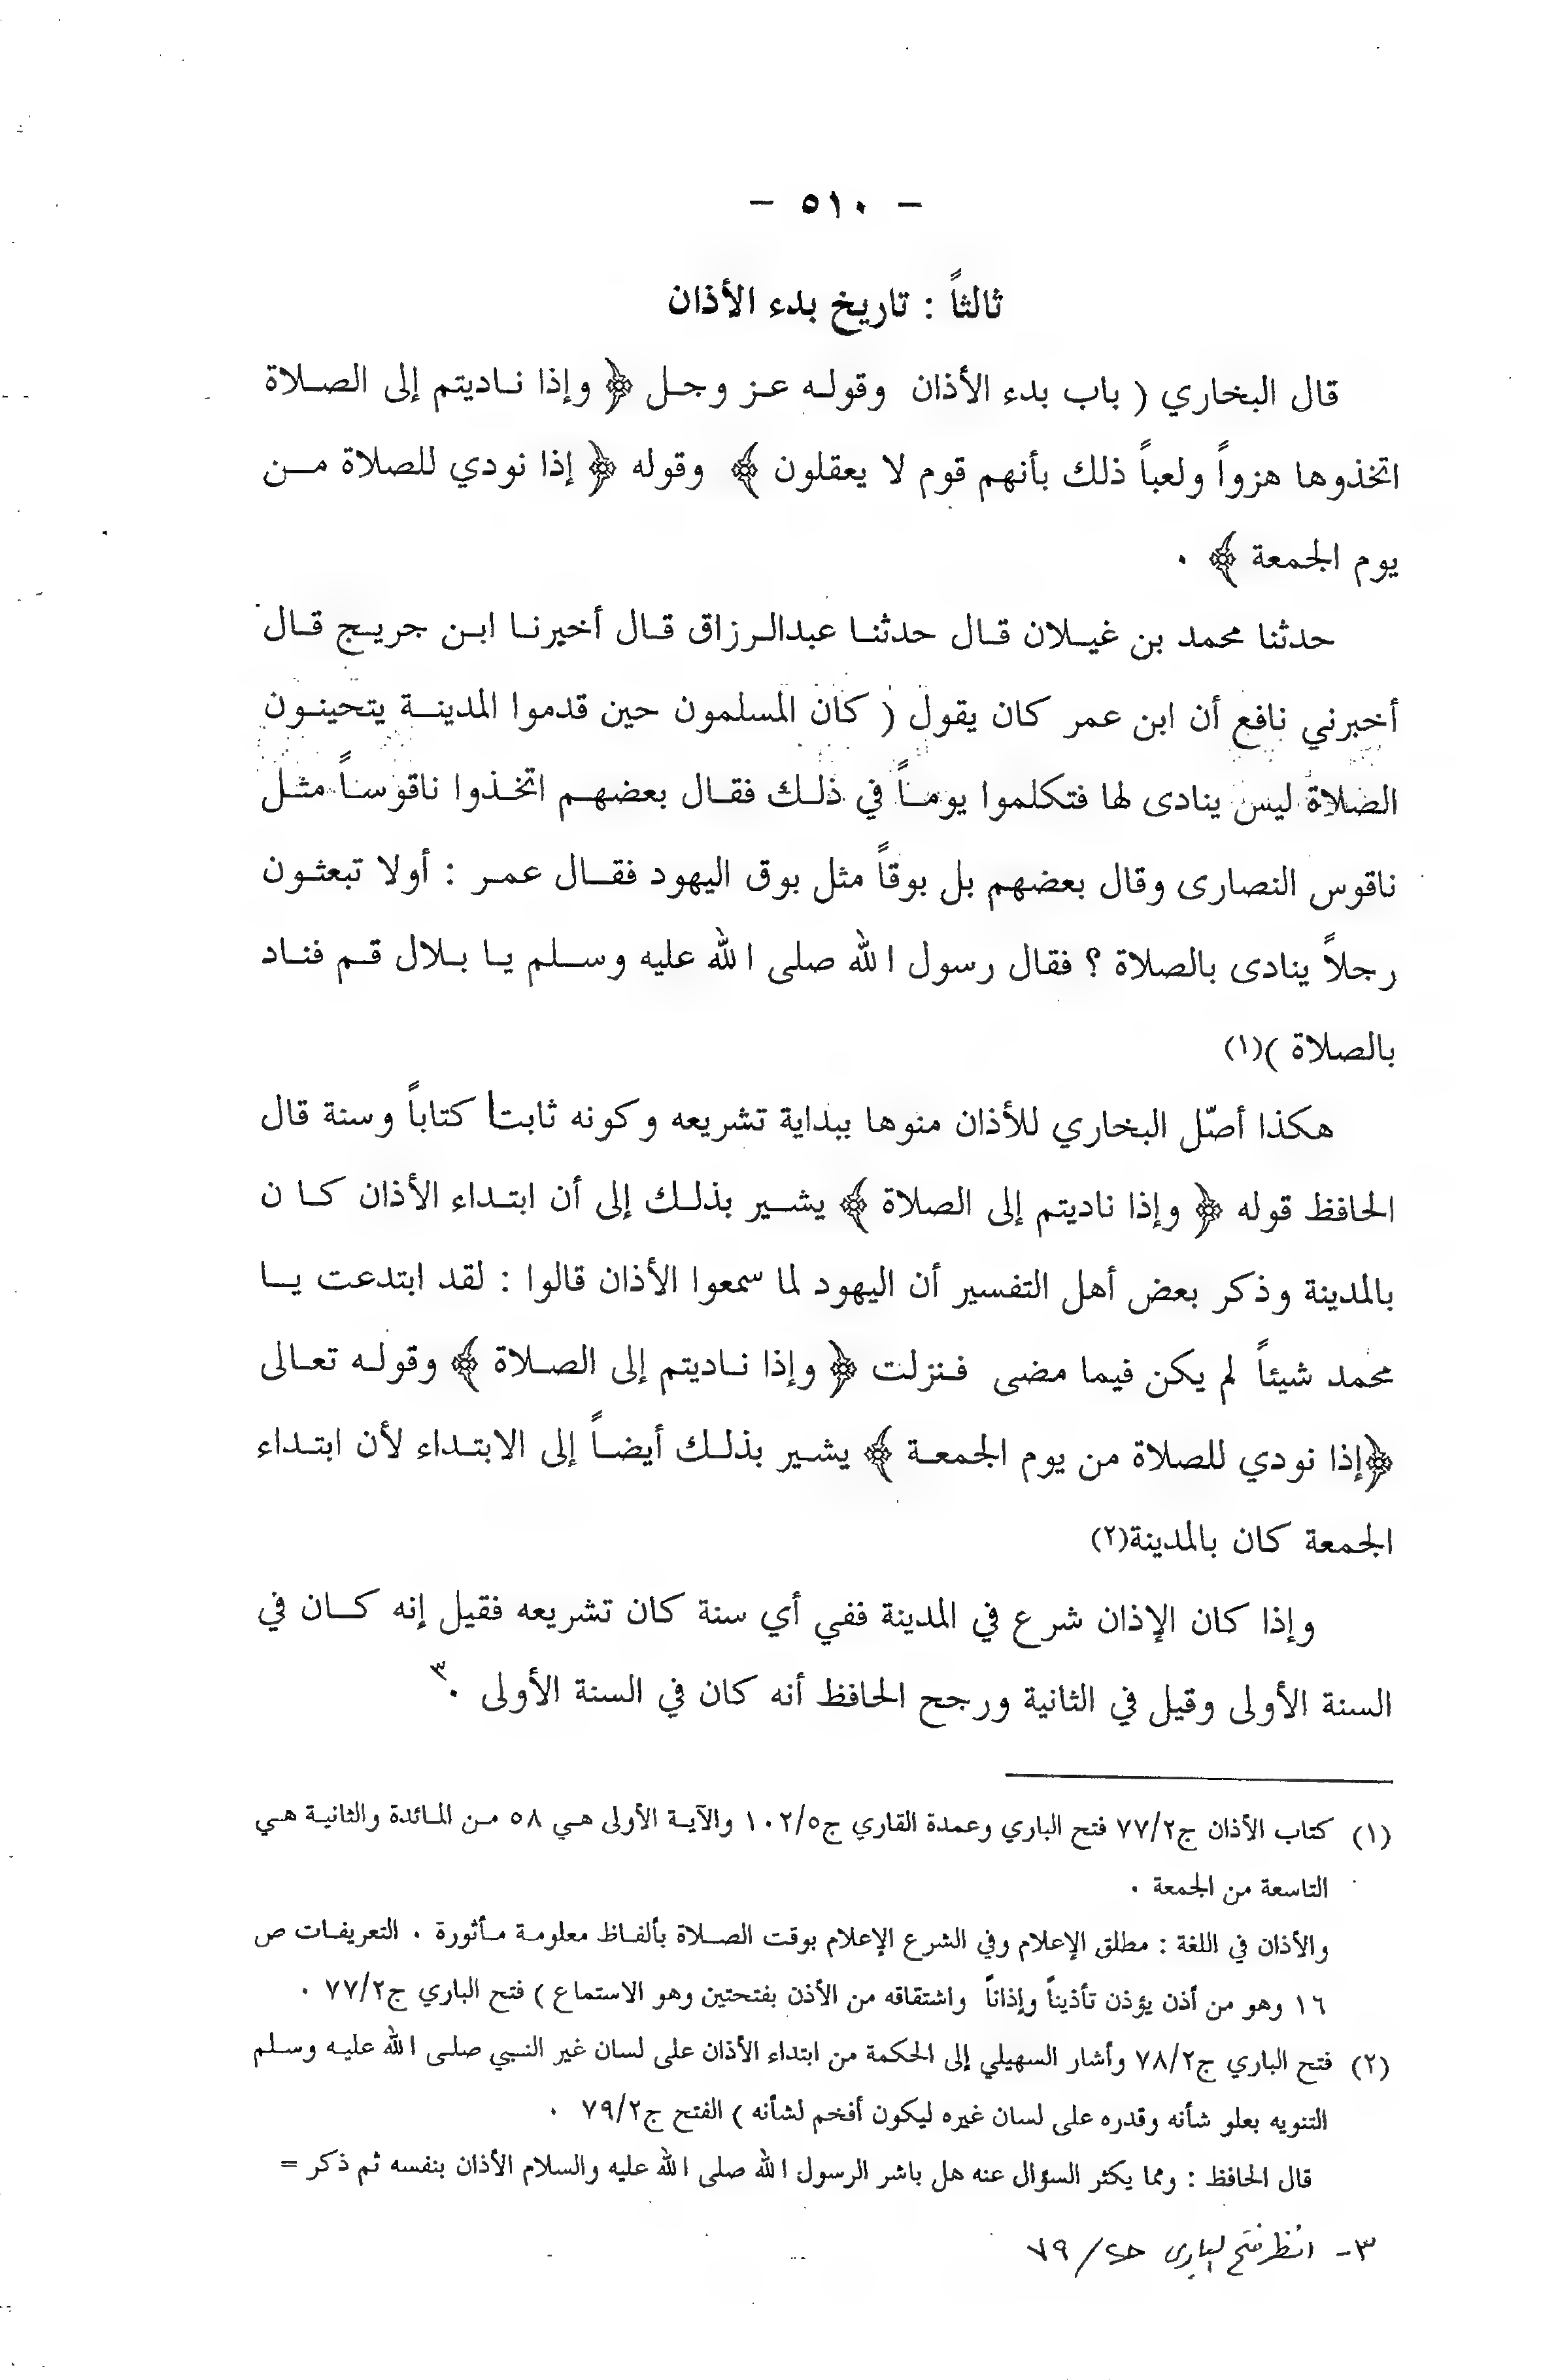 - ٥١٠ -
ثالثاً : تاريخ بدء الأذان
قال البخاري ( باب بدء الأذان وقوله عز وجل ﴿ وإذا ناديتم إلى الصلاة
اتخذوها هزواً ولعباً ذلك بأنهم قوم لا يعقلون ﴾ وقوله ﴿ إذا نودي للصلاة من
يوم الجمعة ﴾ .
حدثنا محمد بن غيلان قال حدثنا عبدالرزاق قال أخبرنا ابن جريج قال
أخبرني نافع أن ابن عمر كان يقول ( كان المسلمون حين قدموا المدينة يتحينون
الصلاة ليس ينادى لها فتكلموا يوماً في ذلك فقال بعضهم اتخذوا ناقوساً مثل
ناقوس النصارى وقال بعضهم بل بوقاً مثل بوق اليهود فقال عمر : أولا تبعثون
رجلاً ينادى بالصلاة ؟ فقال رسول الله صلى الله عليه وسلم يا بلال قم فناد
بالصلاة )(١)
هكذا أصّل البخاري للأذان منوها ببداية تشريعه وكونه ثابتا كتاباً وسنة قال
الحافظ قوله ﴿ وإذا ناديتم إلى الصلاة ﴾ يشير بذلك إلى أن ابتداء الأذان كان
بالمدينة وذكر بعض أهل التفسير أن اليهود لما سمعوا الأذان قالوا : لقد ابتدعت يا
محمد شيئاً لم يكن فيما مضى فنزلت ﴿ وإذا ناديتم إلى الصلاة ﴾ وقوله تعالى
﴿إذا نودي للصلاة من يوم الجمعة ﴾ يشير بذلك أيضاً إلى الابتداء لأن ابتداء
الجمعة كان بالمدينة(٢)
وإذا كان الإذان شرع في المدينة ففي أي سنة كان تشريعه فقيل إنه كان في
السنة الأولى وقيل في الثانية ورجح الحافظ أنه كان في السنة الأولى .٣
(١) كتاب الأذان ج٧٧/٢ فتح الباري وعمدة القاري ج١٠٢/٥ والآية الأولى هي ٥٨ من المائدة والثانية هي
التاسعة من الجمعة .
والأذان في اللغة : مطلق الإعلام وفي الشرع الإعلام بوقت الصلاة بألفاظ معلومة مأثورة . التعريفات ص
١٦ وهو من أذن يؤذن تأذيناً وإذاناً واشتقاقه من الأذن بفتحتين وهو الاستماع ) فتح الباري ج٧٧/٢ .
(٢) فتح الباري ج٧٨/٢ وأشار السهيلي إلى الحكمة من ابتداء الأذان على لسان غير النبي صلى الله عليه وسلم
التنويه بعلو شأنه وقدره على لسان غيره ليكون أفخم لشأنه ) الفتح ج٧٩/٢ .
قال الحافظ : ومما يكثر السؤال عنه هل باشر الرسول الله صلى الله عليه والسلام الأذان بنفسه ثم ذكر =
٣- انظر فتح الباري ج٢/ ٧٩